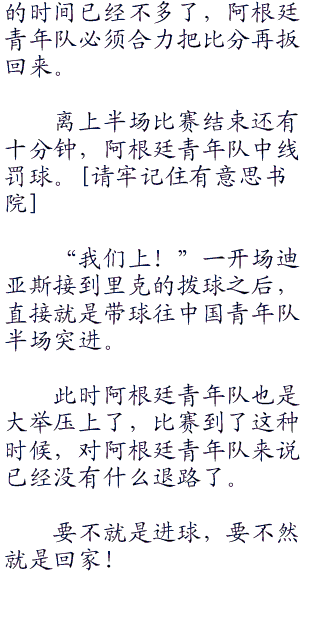 的时间已经不多了，阿根廷
青年队必须合力把比分再扳
回来。
离上半场比赛结束还有
十分钟，阿根廷青年队中线
罚球。[请牢记住有意思书
院]
“我们上！”一开场迪
亚斯接到里克的拨球之后，
直接就是带球往中国青年队
半场突进。
此时阿根廷青年队也是
大举压上了，比赛到了这种
时候，对阿根廷青年队来说
已经没有什么退路了。
要不就是进球，要不然
就是回家！